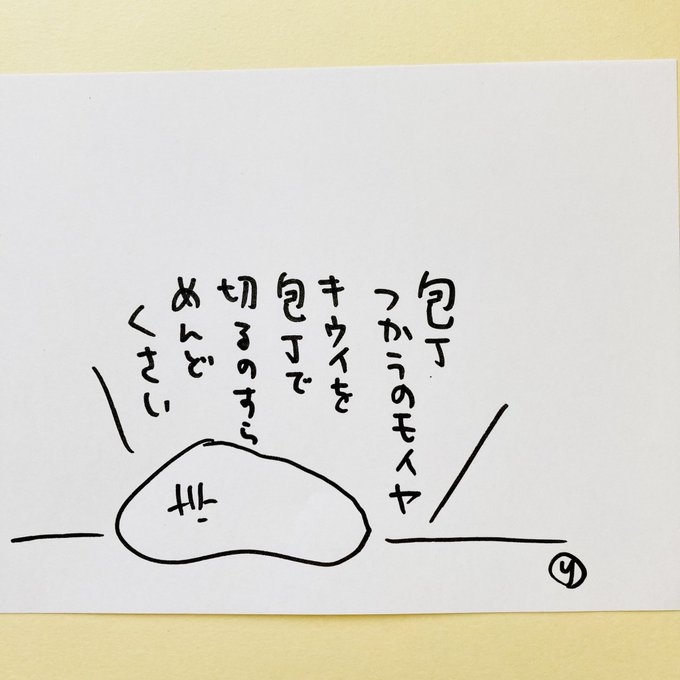 包丁
つかうのモイヤ
キウイを
包丁で
切るのすら
めんど
くさい
y